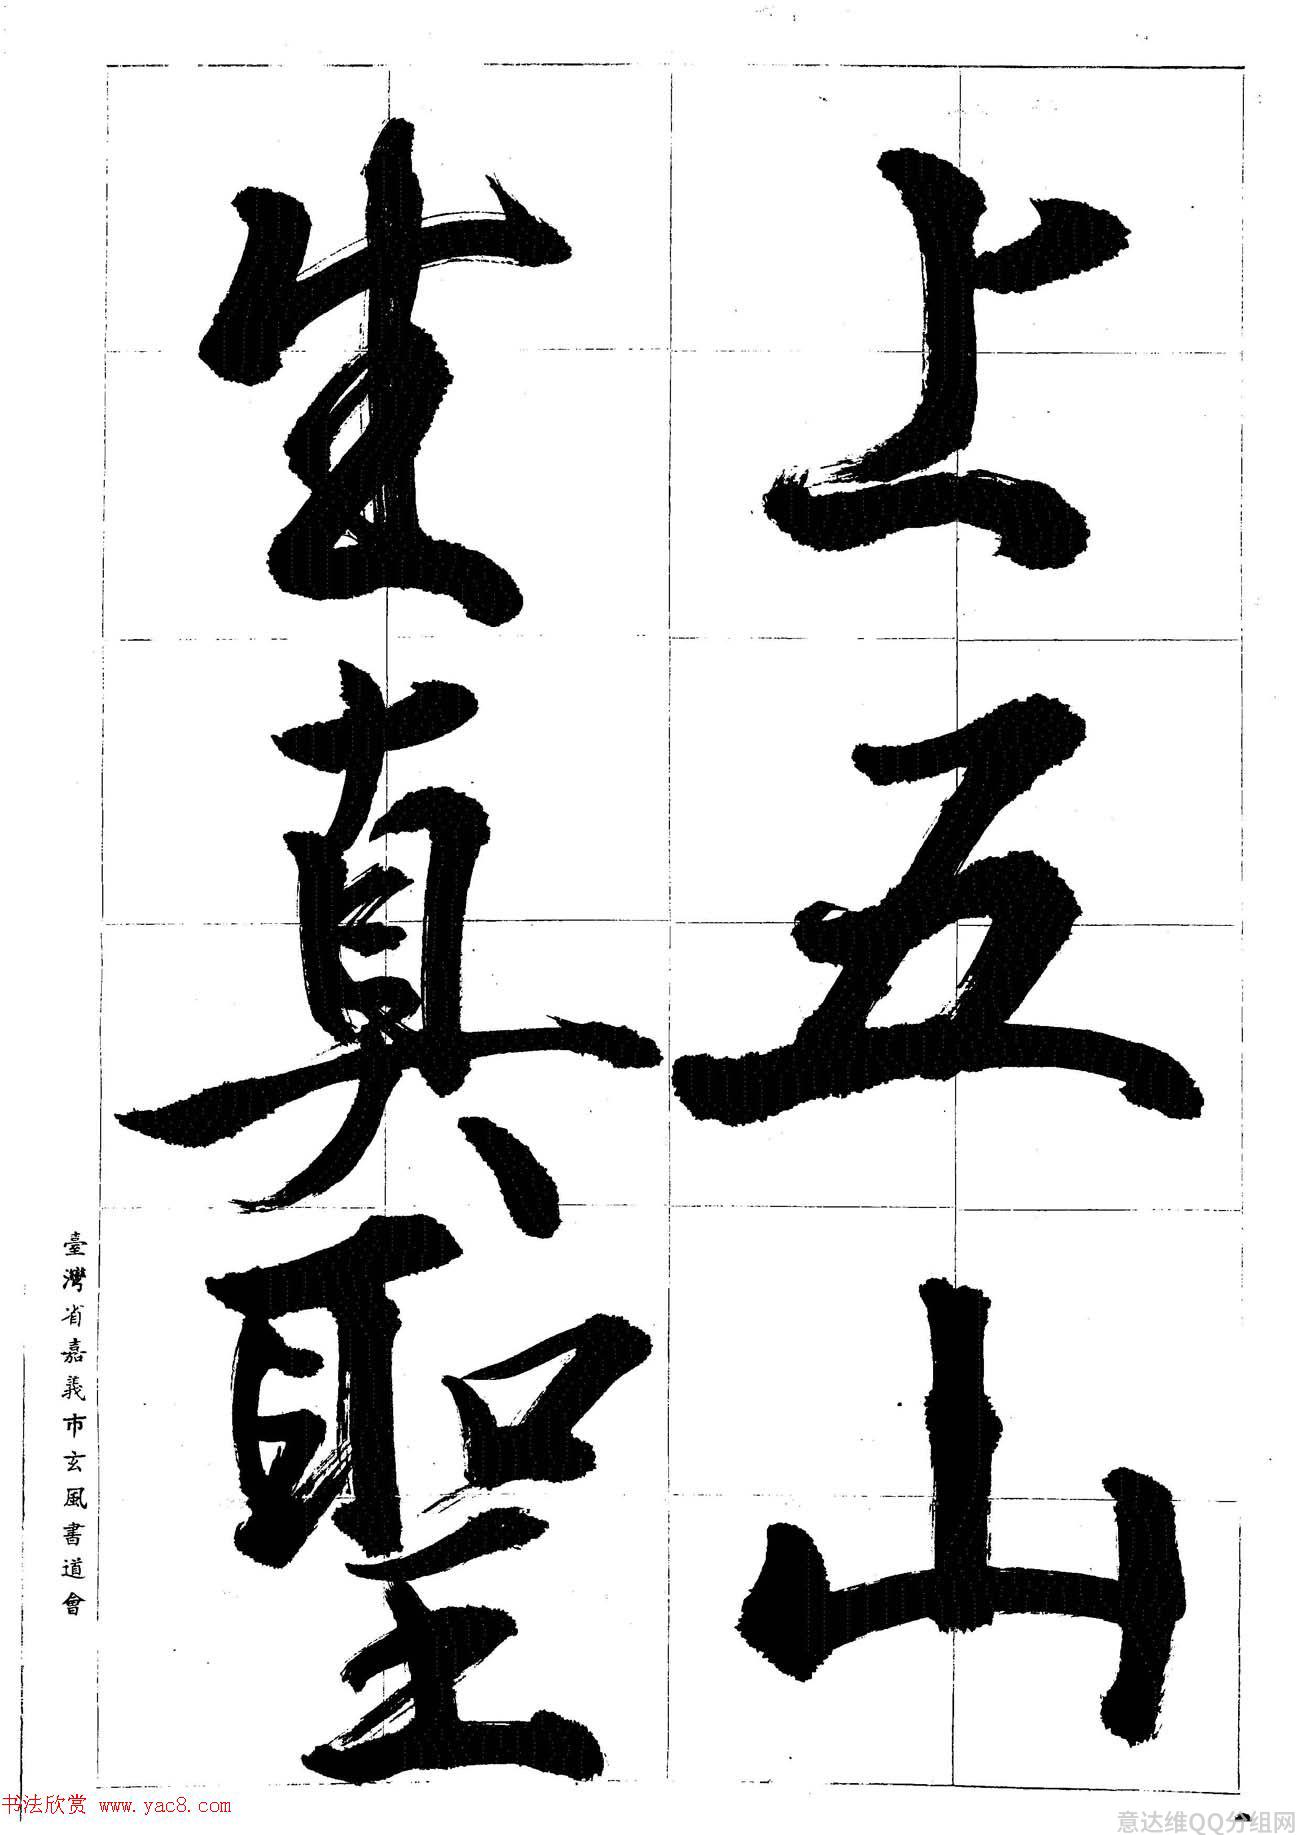 上五山
生真聖
臺灣省嘉義市玄風書道會
书法欣赏 www.yac8.com
意达维QQ分组网